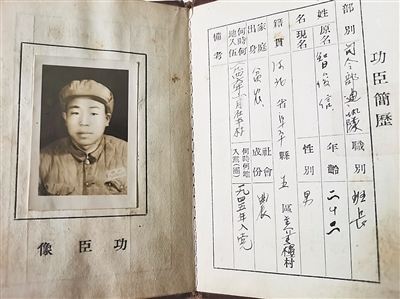 功臣像
功臣簡歷
部別 司令部通訊隊 職別 班長
姓名 原名 智俊信 年齡 二十二
現名 性別 男
籍貫 河北省阜平縣五區樓村
家庭出身 貧農 社會成份 農
何時何地入伍 年八月在本村 何時何地入黨(團) 一九四五年入党
備考